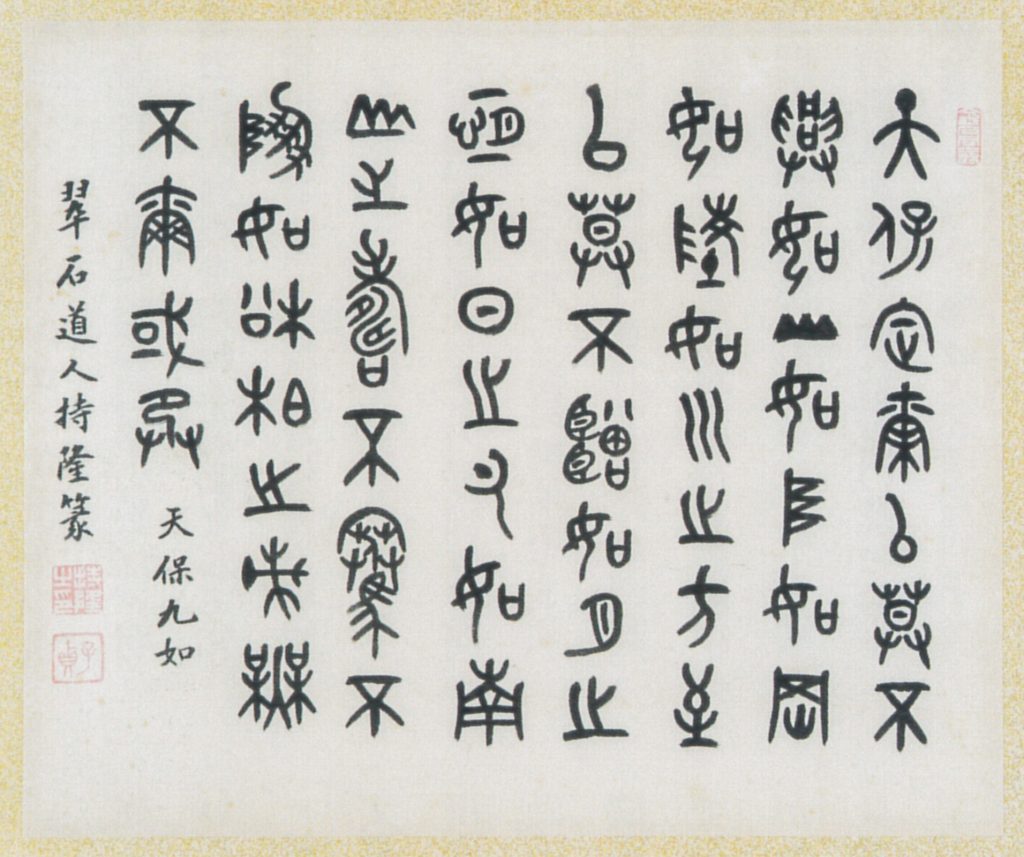 天保定爾以莫不
興如山如阜如岡
如陵如川之方至
以莫不增如月之
恆如日之升如南
山之壽不騫不
崩如松柏之茂無
不爾或承
天保九如
翠石道人持隆篆
子貞